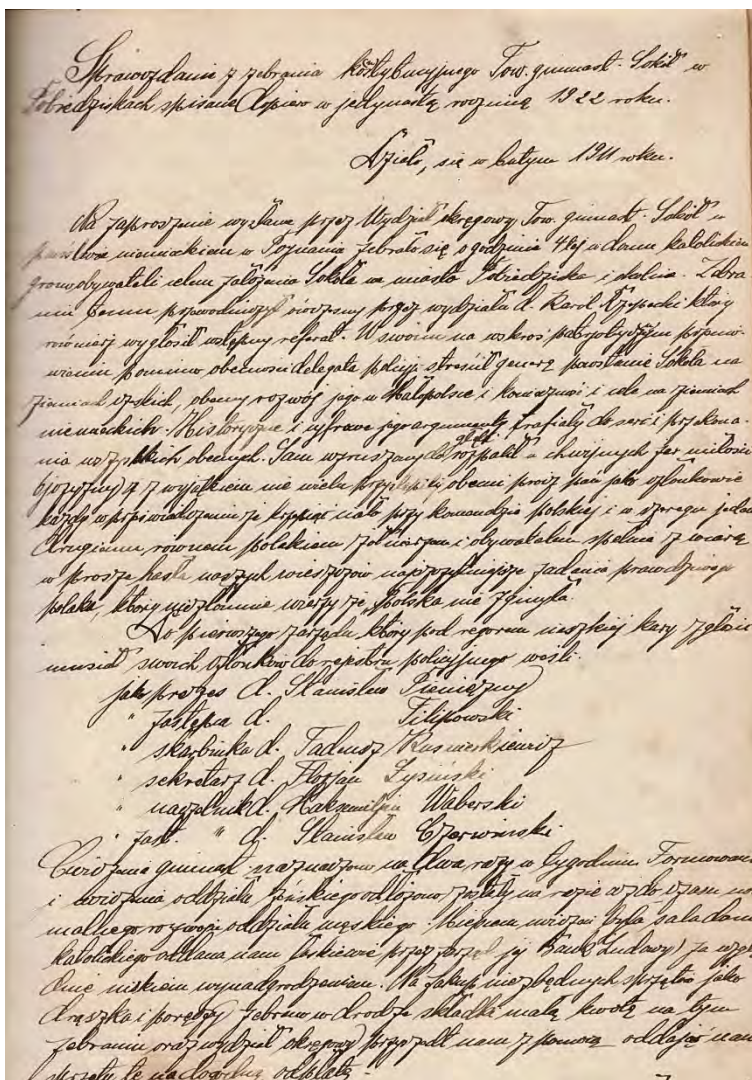 Sprawozdanie z zebrania konstytucyjnego Tow. gimnast. Sokół w
Pobiedziskach spisane dopiero w jedynastą rocznicę 1922 roku.
Działo, się w lutym 1911 roku.
Na zaproszenie wysłane przez Wydział okręgowy Tow. gimnast. Sokół w
państwie niemieckiem w Poznaniu zebrało się o godzinie 4tej w domu katolickim
grono obywateli celem założenia Sokoła na miasto Pobiedziska i okolice. Zebra
niu temu przewodniczył przez wydział d. Karol Rzepecki który
również wygłosił wstępny referat. W swoim na wskroś patrjotycznym przemó-
wieniu pomimo obecności delegata policji streścił genezę powstanie Sokoła na
ziemiach obecny rozwój jego w Małopolsce i konieczność i cele na ziemiach
niemieckich. Historyczne i cyfrowe jego argumenty trafiały do serc i przekona-
nia wszystkich obecnych. Sam wzruszony do głębi rozpalił w chwijnych żar miłości
ojczyzny z wyjątkiem nie wielu obecni prócz pań jako członkowie
każdy w przeświadczeniu że krzepiąc ciało przy komendzie polskiej i w szeregu jeden
drugiemu równem polskiem żołnierzem i obywatelem spełnia z wiarą
w prorocze hasła naszych wieszczów zadania prawdziwego
polaka, który niezłomnie wierzy że „Polska nie zginęła.
Do pierwszego zarządu który pod rygorem kary zgłosić
musiał swoich członków do rejestru policyjnego weśli:
jako prezes d. Stanisław Pieniężny
" zastępca d. Filipowski
" skarbnika d. Tadeusz
" sekretarz d. Florjan Łysiński
" naczelnik d. Maksymiljan Waberski
" zast. " d. Stanisław Czerwiński
Ćwiczenia gimnast. naznaczono na dwa razy w tygodniu. Formowanie
i ćwiczenia oddziału żeńskiego odłożono zostały na razie aż do czasu nor
malnego rozwoju oddziału męskiego. Miejscem ćwiczeń była sala domu
katolickiego oddana nam łaskawie przez zarząd jej Bank Ludowy za wzglę
dnie niskiem wynadgrodzeniem. Na zakup niezbędnych sprzętów jako
drążka i poręczy zebrano w drodze składki małą kwotę na tym
zebraniu oraz wydział okręgowy przyszedł nam z pomocą oddając nam
sprzęty te na dogodną odpłatę.